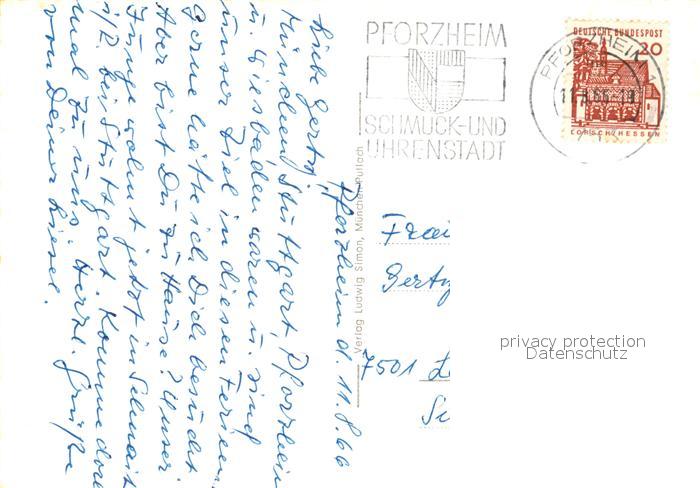 Pforzheim d. 11.8.66
Liebe Gerty!
München, Stuttgart, Pforzheim
u. Wiesbaden waren u. sind
unser Ziel in diesen Ferien.
Gerne hätte ich Dich besucht
Aber bist Du zu Hause? Unser
Junge wohnt jetzt in Schnait
i/R. bei Stuttgart. Komme doch
mal zu uns. Herzl. Grüße
von Deiner Liesel.
Verlag Ludwig Simon, München-Pullach
PFORZHEIM
SCHMUCK-UND
UHRENSTADT
PFORZHEIM
DEUTSCHE BUNDESPOST
20
LORSCH/HESSEN
Gerty
7501
privacy protection
Datenschutz